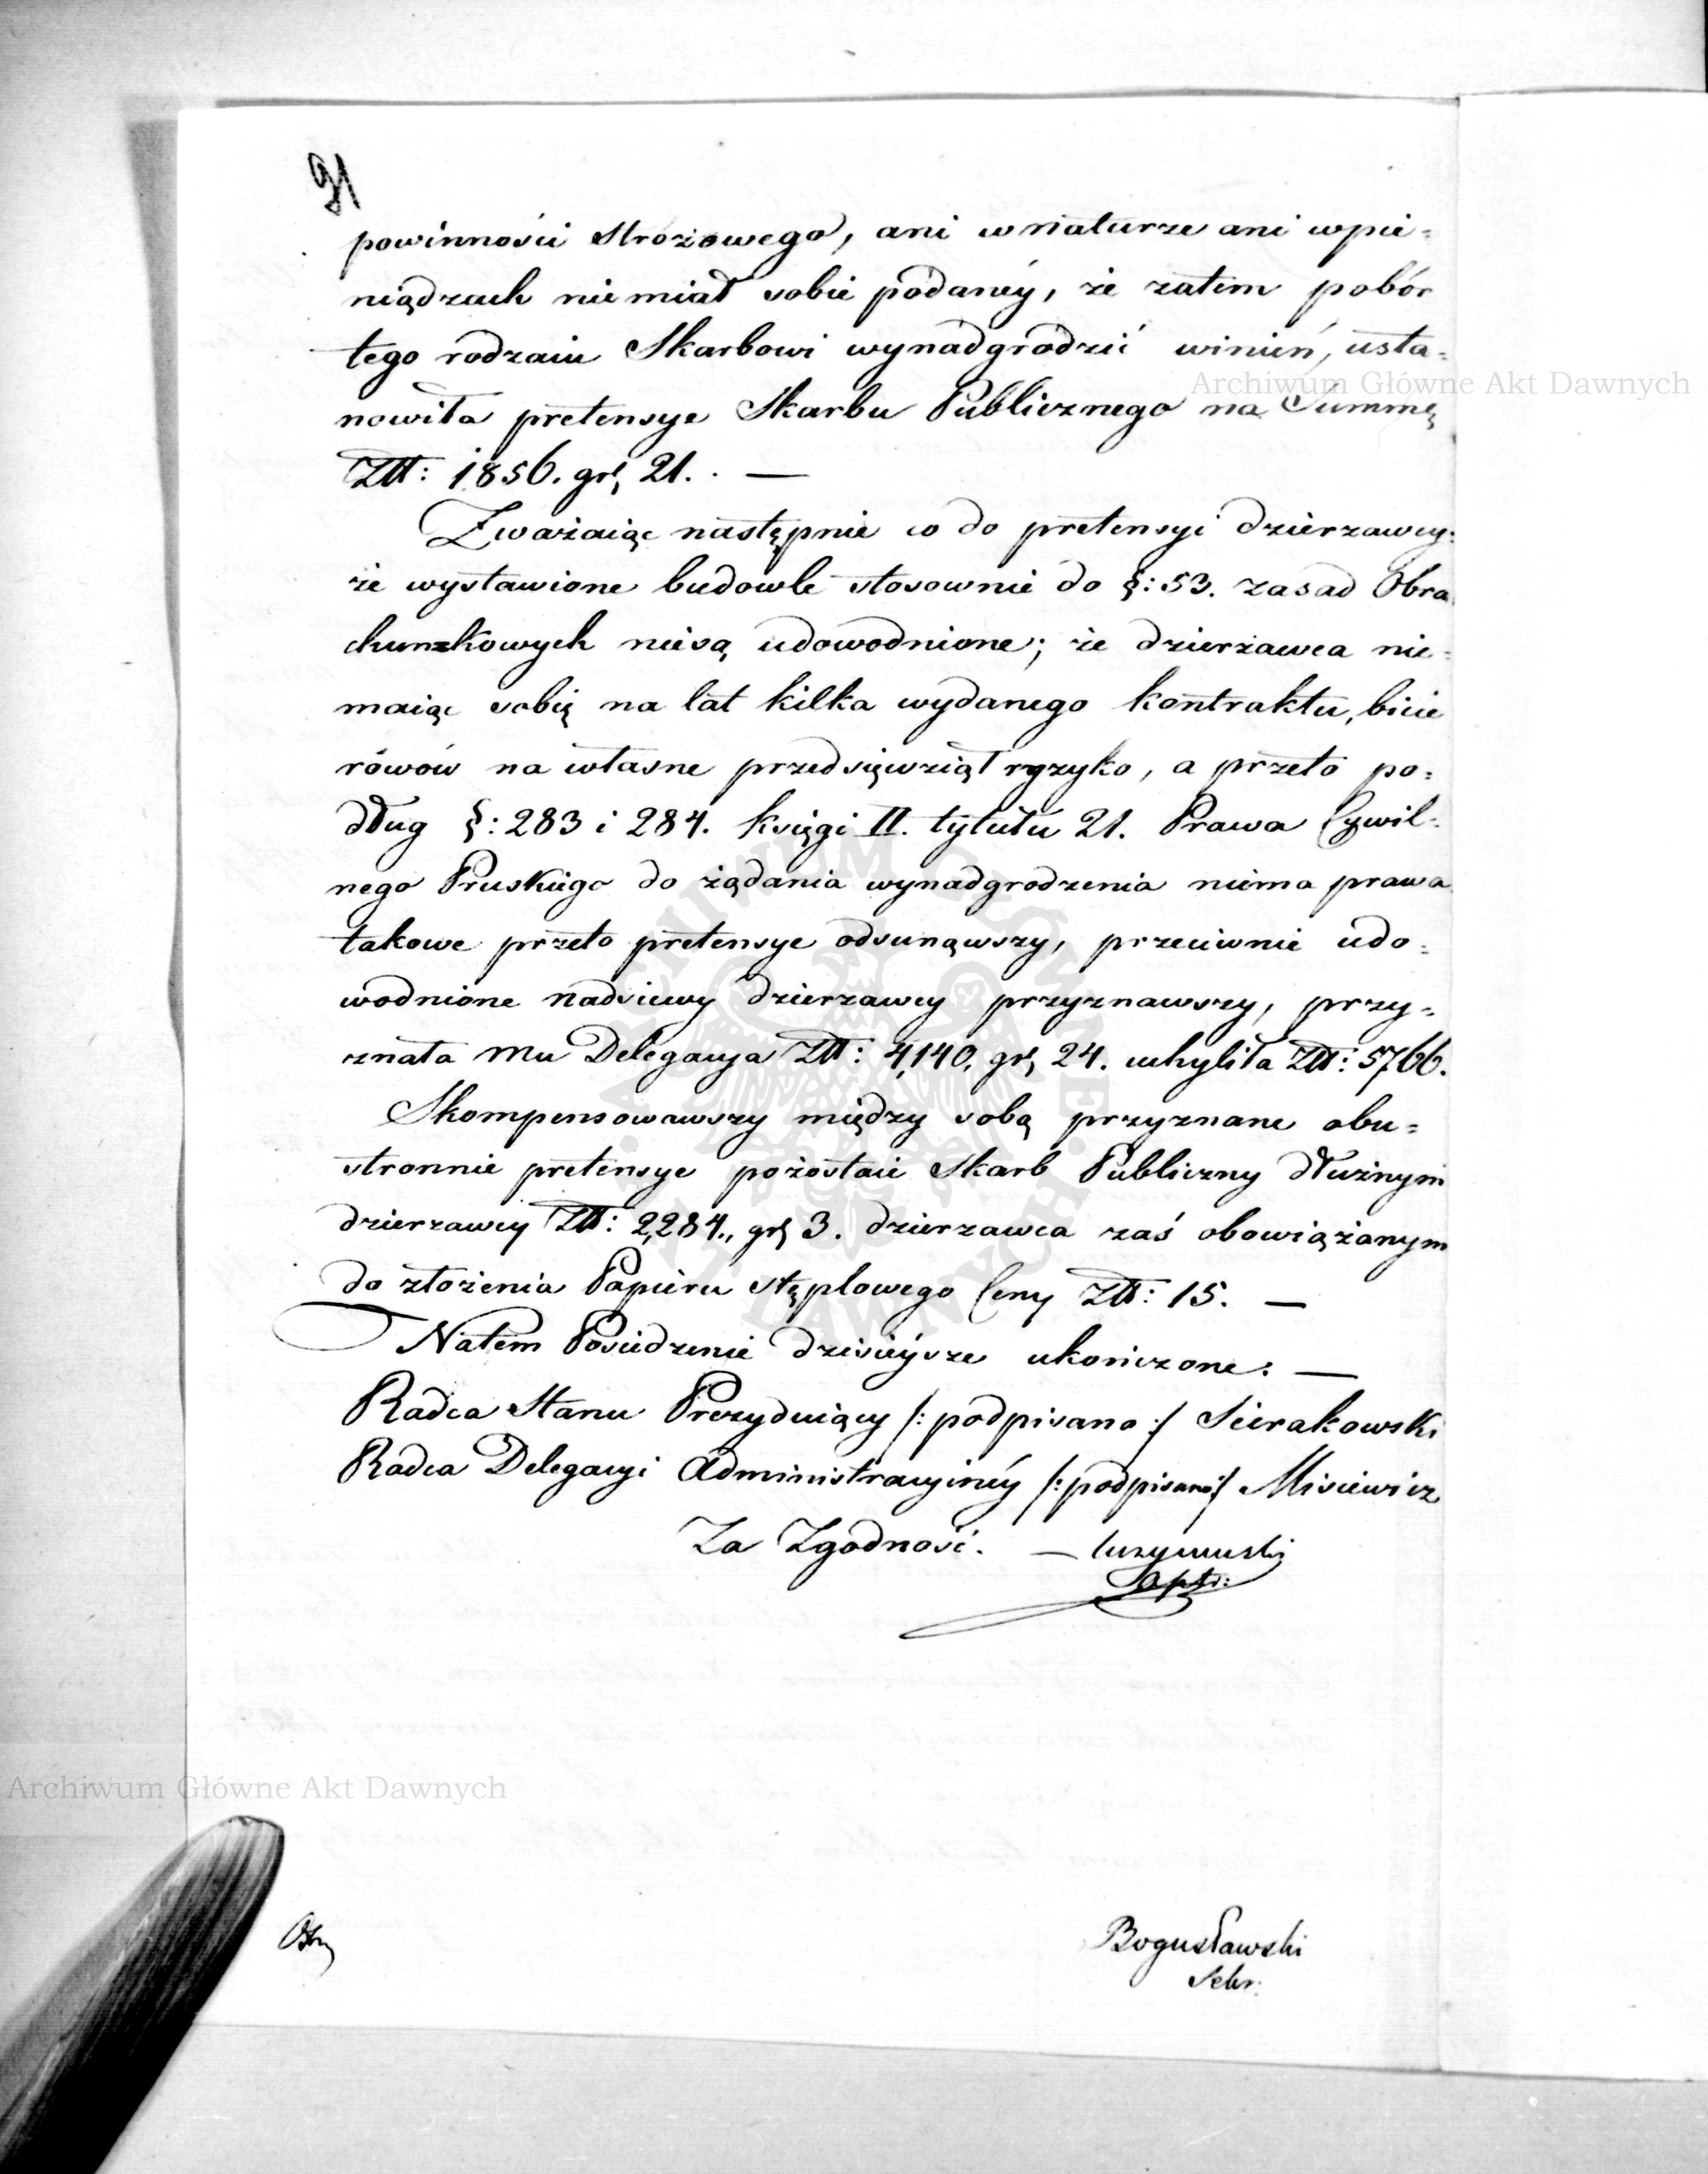 91
powinności stróżowego, ani w naturze ani w pie=
niądzach nie miał sobie podaney, że zatem pobór
tego rodzaiu Skarbowi wynadgrodzić winien, usta=
nowiła pretensye Skarbu Publicznego na Summę
Złł: 1856. gr. 21. —
Zważaiąc następnie co do pretensyi dzierzawcy:
że wystawione budowle stosownie do §: 53. zasad Obra
chunkowych niesą udowodnione; że dzierzawca nie=
maiąc sobię na lat kilka wydanego kontraktu, bicie
rówów na własne przedsięwziął ryzyko, a przeto po=
dług §: 283 i 284. księgi II. tytułu 21. Prawa Cywil=
nego Pruskiego do żądania wynadgrodzenia niema prawa
takowe przeto pretensye odsunąwszy, przeciwnie udo=
wodnione nadsiewy dzierzawcy przyznawszy, przy=
znała mu Delegacya Złł: 4,140. gr. 24. uchyliła Złł: 5766.
Skompensowawszy między sobą przyznane obu=
stronnie pretensye pozostaie Skarb Publiczny dłużnym
dzierzawcy Złł: 2,284., gr. 3. dzierzawca zaś obowiązanym
do złożenia Papieru stęplowego Ceny Złł: 15. —
Natem Posiedzenie dzisieysze ukończone. —
Radca Stanu Prezyduiący /: podpisano :/ Sierakowski
Radca Delegacyi Administracyiney /: podpisano :/ Misiewicz
Za Zgodność. —
Bogusławski
Sekr.
Archiwum Główne Akt Dawnych
Archiwum Główne Akt Dawnych